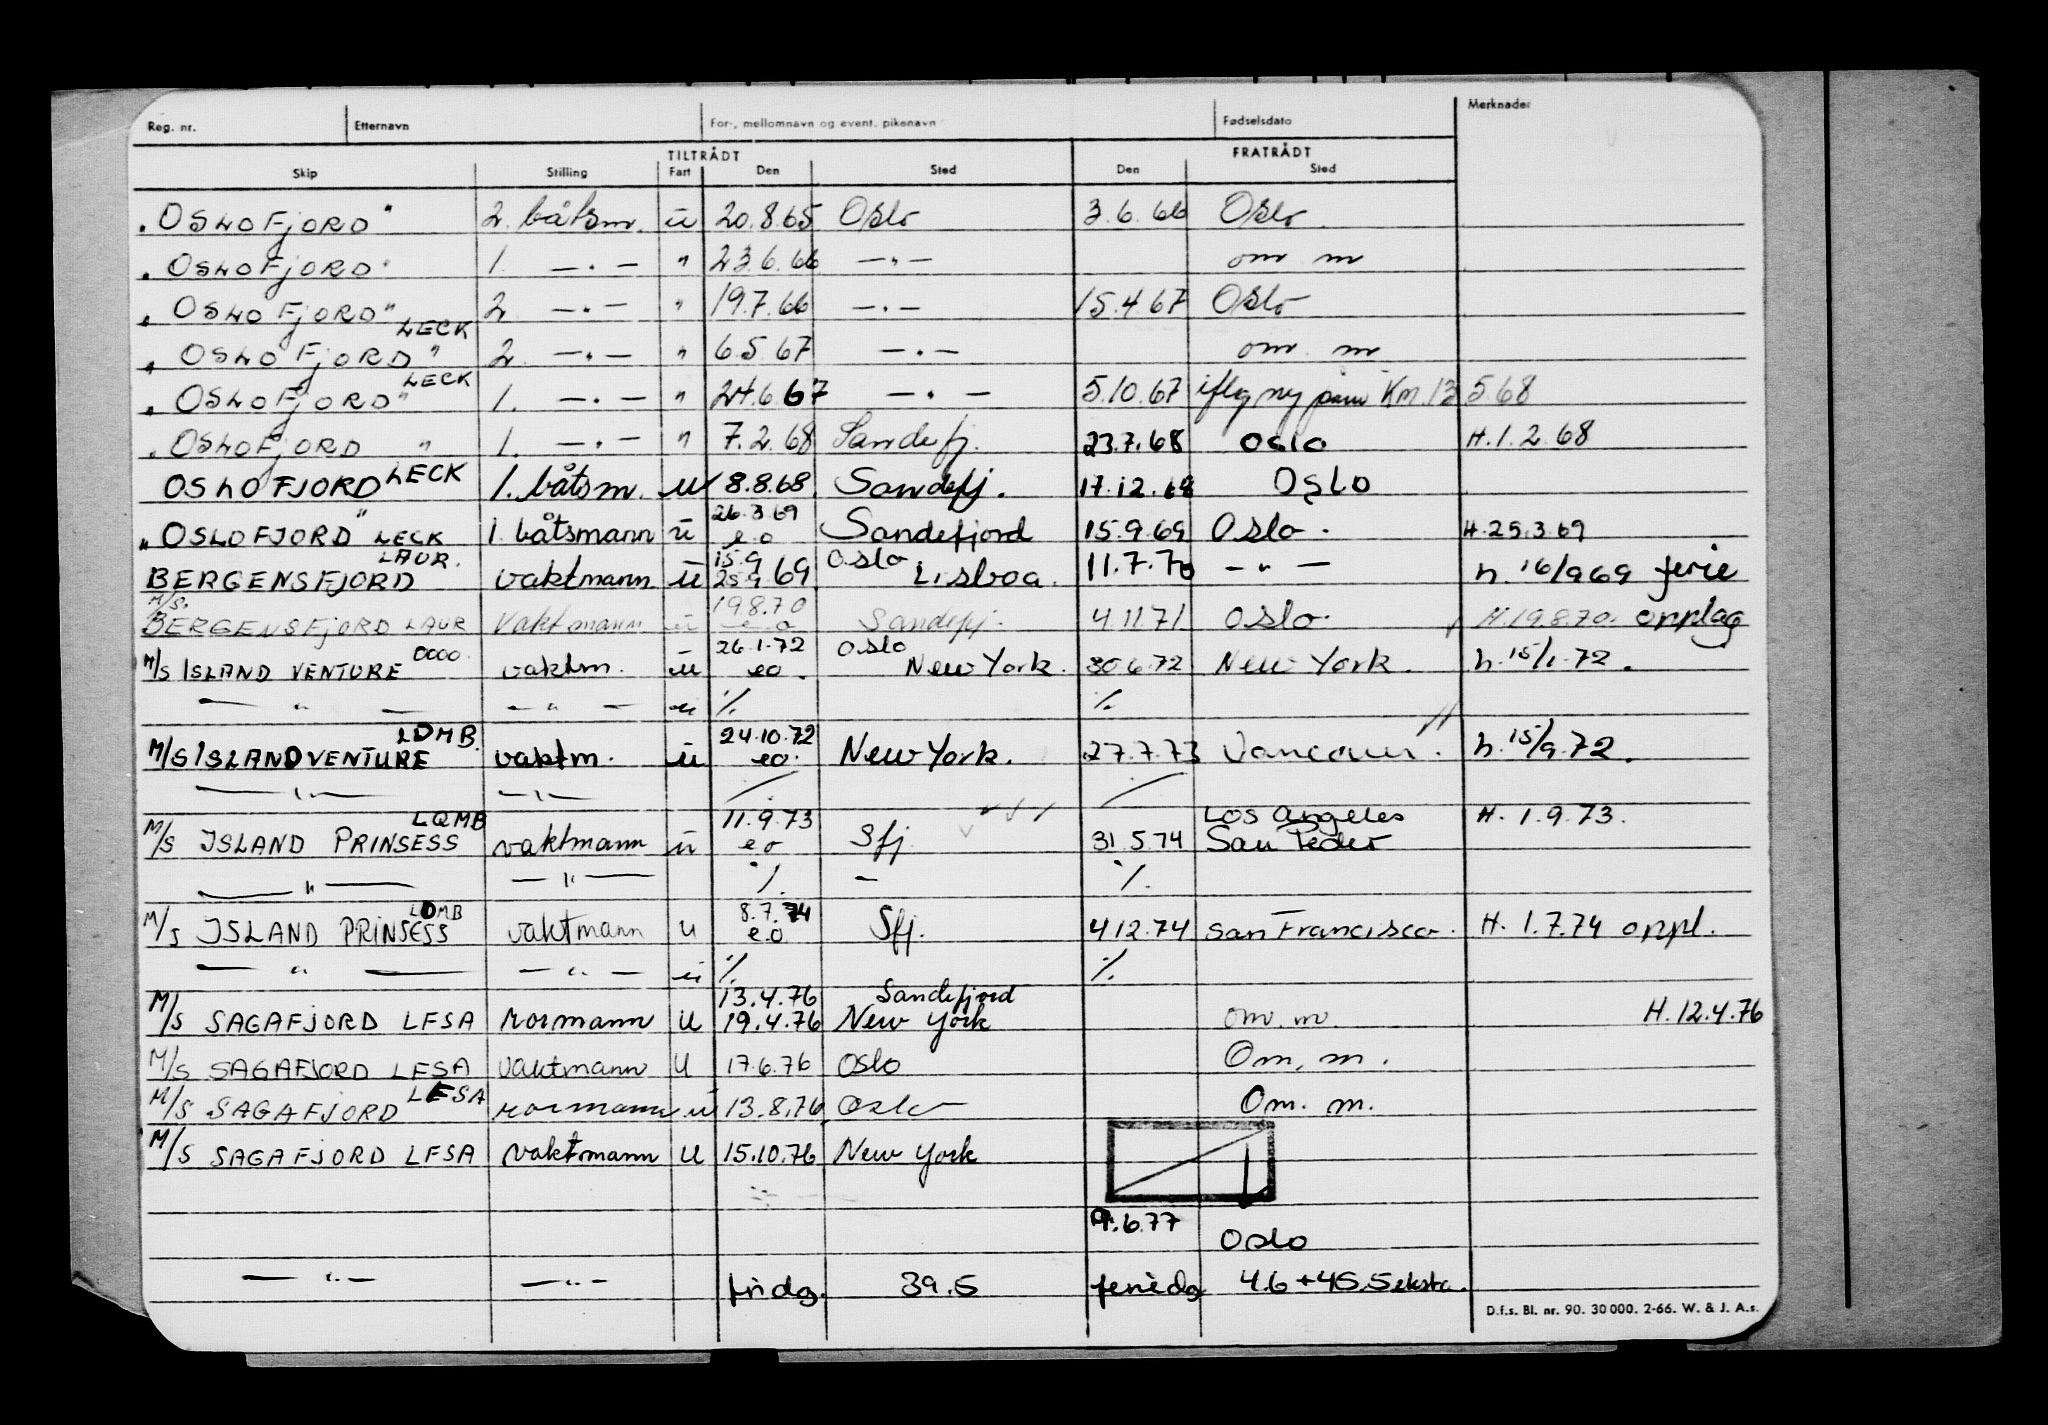 Reg. nr. Etternavn For-, mellomnavn og event. pikenavn Fødselsdato Merknader
TILTRÅDT FRATRÅDT
Skip Stilling Fart Den Sted Den Sted
"OSLOFJORD" 2. båtsm. ū 20.8.65 Oslo 3.6.66 Oslo
"OSLOFJORD" 1. — " — " 23.6.66 — " — om m
"OSLOFJORD" 2 — " — " 19.7.66 — " — 15.4.67 Oslo
LECK
"OSLOFJORD" 2. — " — " 6.5.67 — " — om. m
LECK
"OSLOFJORD" 1. — " — " 24.6.67 — " — 5.10.67 iflg ny Km. 13 5.68
"OSLOFJORD" 1. — " — " 7.2.68 Sandefj. 23.7.68 Oslo H.1.2.68
OSLOFJORD LECK 1. båtsm. u 8.8.68 Sandefj. 17.12.68 Oslo
26.3.69
"OSLOFJORD" LECK 1. båtsmann ū e.o Sandefjord 15.9.69 Oslo. H.25.3.69
LAUR. 15.9 Oslo
BERGENSFJORD vaktmann ū 25.9 69 Lisboa. 11.7.70 — " — h. 16/9 69 ferie
M/S. 19.8.70
BERGENSFJORD LAUR Vaktmann ū e.o Sandefj. 4.11.71 Oslo. H.19.8.70. opplag
0000 26.1.72 Oslo
M/S ISLAND VENTURE vaktm. ū eo. New York. 30.6.72 New York. h. 15/1.72.
— " — — " — ū ./. ./.
LDMB. 24.10.72
M/S ISLAND VENTURE vaktm. ū eo. New York. 27.7.73 h. 15/9.72.
— " — — " — / /
LQMB 11.9.73 Los Angeles H. 1.9.73.
M/S ISLAND PRINSESS vaktmann ū e o Sfj 31.5.74 San Pedro
— " — — " — ./. — ./.
LDMB 8.7.74
M/S ISLAND PRINSESS vaktmann u e.o Sfj. 4.12.74 San Francisco. H. 1.7.74 oppl.
— " — — " — ū ./. ./.
13.4.76 Sandefjord
M/S SAGAFJORD LFSA rormann u 19.4.76 New York om. m. H.12.4.76
M/S SAGAFJORD LFSA vaktmann U 17.6.76 Oslo Om. m.
LFSA
M/S SAGAFJORD rormann ū 13.8.76 Oslo Om. m.
M/S SAGAFJORD LFSA vaktmann u 15.10.76 New York
9.6.77
Oslo
— " — — " — fridg. 39.5 feriedg 46 + 45.5 ekstra.
D.f.s. Bl. nr. 90. 30 000. 2-66. W. & J. A.s.